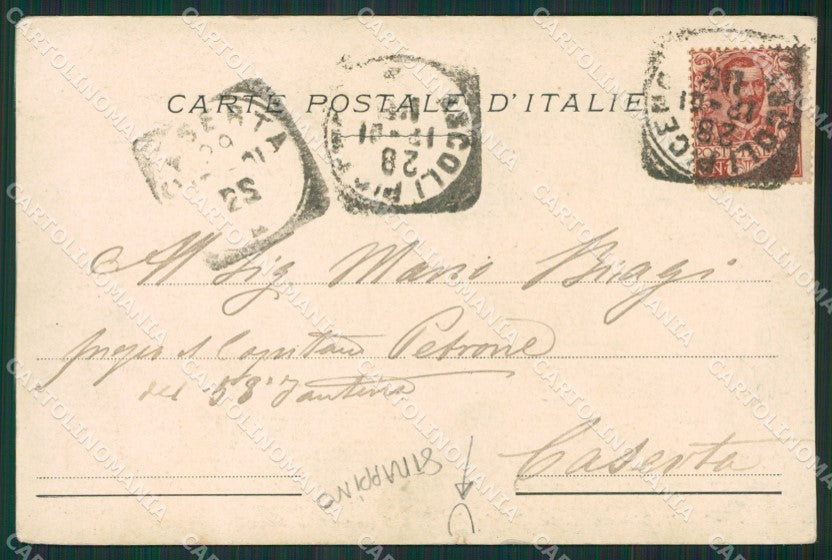 CARTE POSTALE D'ITALIE
CASERTA
25
ASCOLI PICENO
28
12-01
ASCOLI PICENO
28
12-01
Al Sig Mario Biagi
presso il Capitano Petrone
del 58° Fanteria
Caserta
STRAPPINO
CARTOLINOMANIA